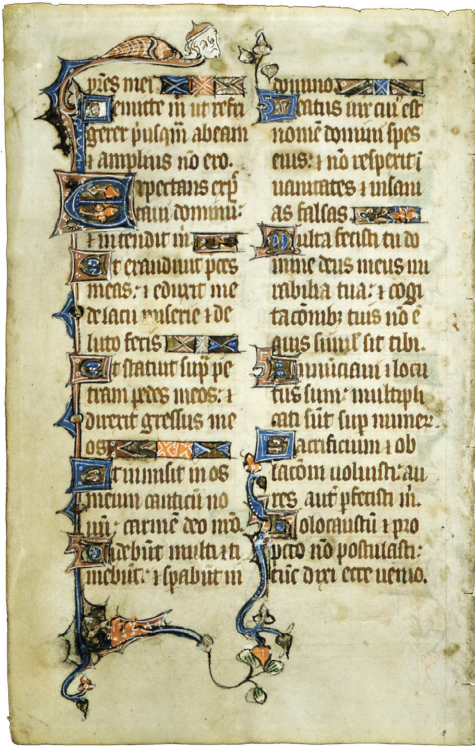 pões mei
Remitte m̄ ut refri
gerer p̄usqm̄ abeam
⁊ amplius nō ero.
Expectans exp̄
ctaui dominū:
⁊ intendit m̄
Et exaudiuit p̄ces
meas: ⁊ eduxit me
de lacu miserie ⁊ de
luto fecis
Et statuit sup̄ pe
tram pedes meos: ⁊
direxit gressus me
os
Et inmisit in os
meum canticū no
uū: carmē deo nr̄o.
Uidebūt multi ⁊ ti
mebūt: ⁊ sp̄abūt in
domino
Beatus uir cuiꝰ est
nomē domini spes
eius: ⁊ nō respexit ī
uanitates ⁊ insani
as falsas
Multa fecisti tu do
mine deus meus mi
rabilia tua: ⁊ cogi
tacōnibꝫ tuis nō ē
quis simil' sit tibi.
Annunciaui ⁊ locu
tus sum: multipli
cati sūt sup numeꝝ
Sacrificium ⁊ ob
lacōm noluisti: au
res aut̄ p̄fecisti m̄.
Holocaustū ⁊ pro
pctō nō postulasti:
tūc dixi ecce uenio.